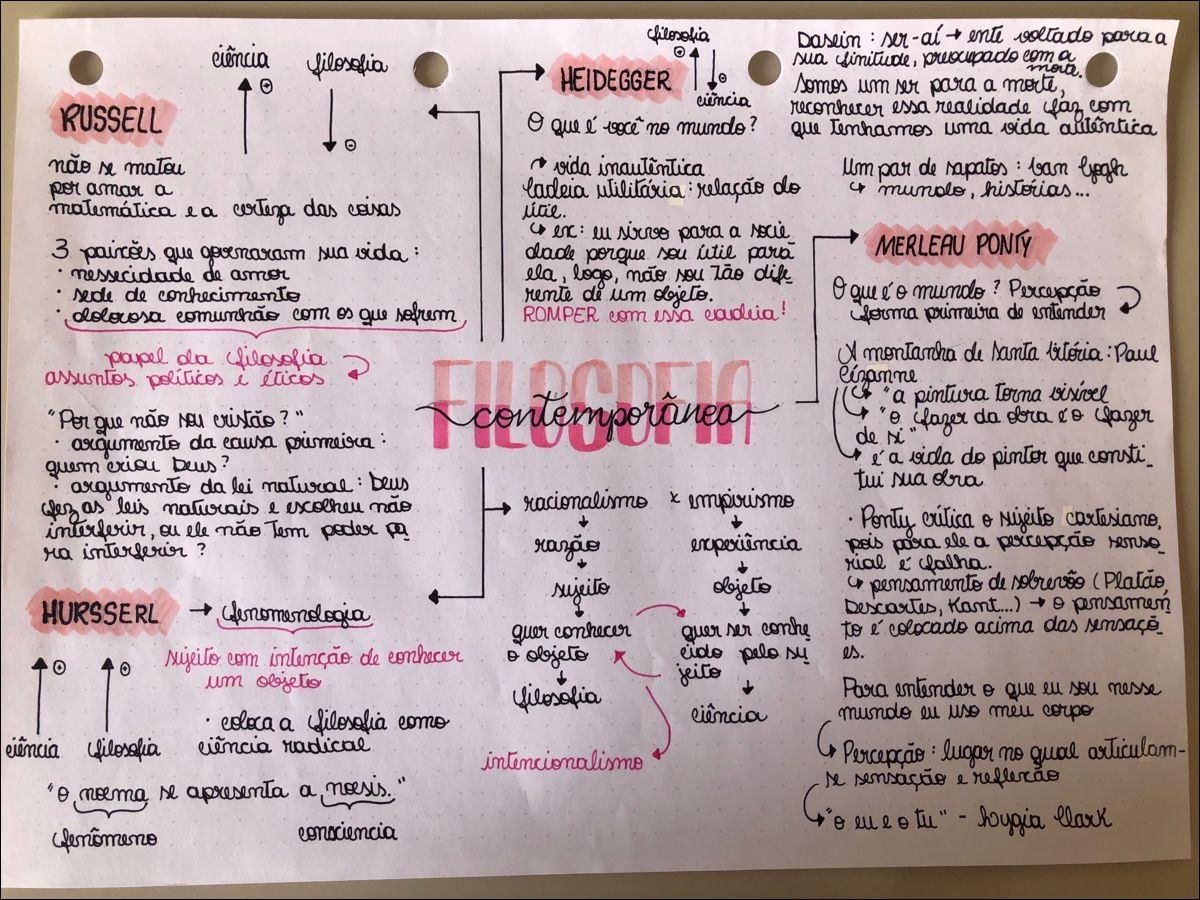 FILOSOFIA
contemporânea
RUSSELL
ciência
filosofia
não se matou
por amar a
matemática e a certeza das coisas
3 paixões que governaram sua vida:
· nessecidade de amor
· sede de conhecimento
· dolorosa comunhão com os que sofrem
papel da filosofia
assuntos políticos e éticos
"Por que não sou cristão?"
· argumento da causa primeira:
quem criou Deus?
· argumento da lei natural: Deus
fez as leis naturais e escolheu não
interferir, ou ele não tem poder pa
ra interferir?
HURSSERL → fenomenologia
sujeito com intenção de conhecer
um objeto
ciência
filosofia
· coloca a filosofia como
ciência radical
"o noema se apresenta a noesis."
fenômeno
consciencia
HEIDEGGER
filosofia
ciência
O que é você no mundo?
vida inautêntica
Cadeia utilitária: relação do
útil.
ex: eu sirvo para a socie
dade porque sou útil para
ela, logo, não sou tão dife
rente de um objeto.
ROMPER com essa cadeia!
racionalismo x empirismo
razão
experiência
sujeito
objeto
quer conhecer
o objeto
quer ser conhe
cido pelo su
jeito
filosofia
ciência
intencionalismo
Dasein: ser-aí → ente voltado para a
sua finitude, preocupado com a
morte.
Somos um ser para a morte,
reconhecer essa realidade faz com
que tenhamos uma vida autêntica
Um par de sapatos: Van Gogh
mundo, histórias...
MERLEAU PONTY
O que é o mundo? Percepção
forma primeira de entender
A montanha de Santa Vitória: Paul
Cézanne
"a pintura torna visível
"o fazer da obra é o fazer
de si"
é a vida do pintor que consti_
tui sua obra
· Ponty critica o sujeito cartesiano,
pois para ele a percepção senso_
rial é falha.
pensamento de sobrevôo (Platão,
Descartes, Kant...) → o pensamen
to é colocado acima das sensaçõ_
es.
Para entender o que eu sou nesse
mundo eu uso meu corpo
Percepção: lugar no qual articulam-
se sensação e reflexão
"o eu e o tu" - Lygia Clark